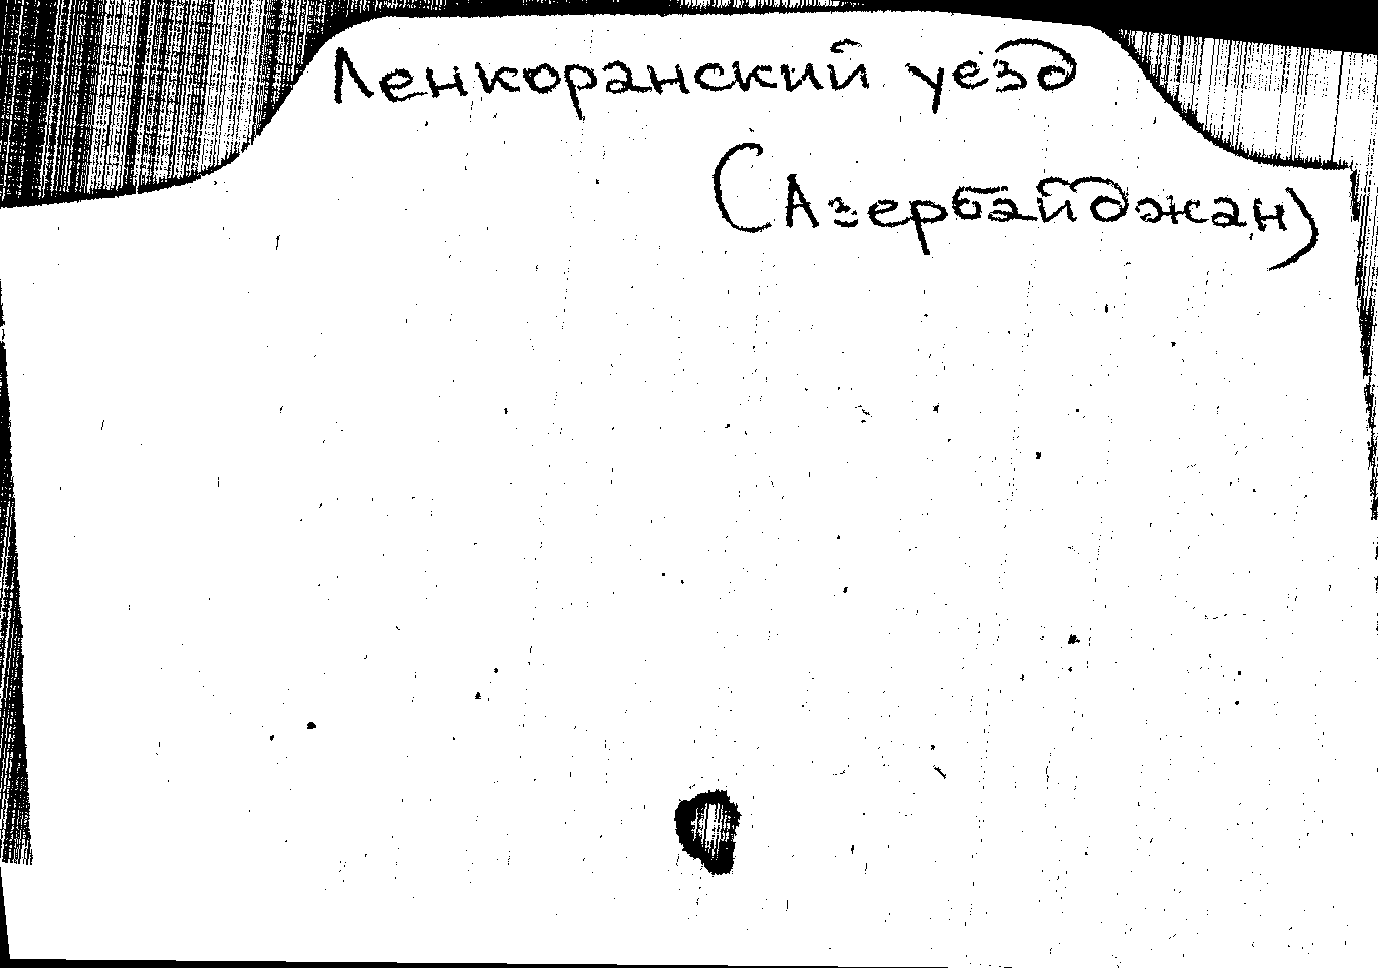 Ленкоранский уезд
(Азербайджан)